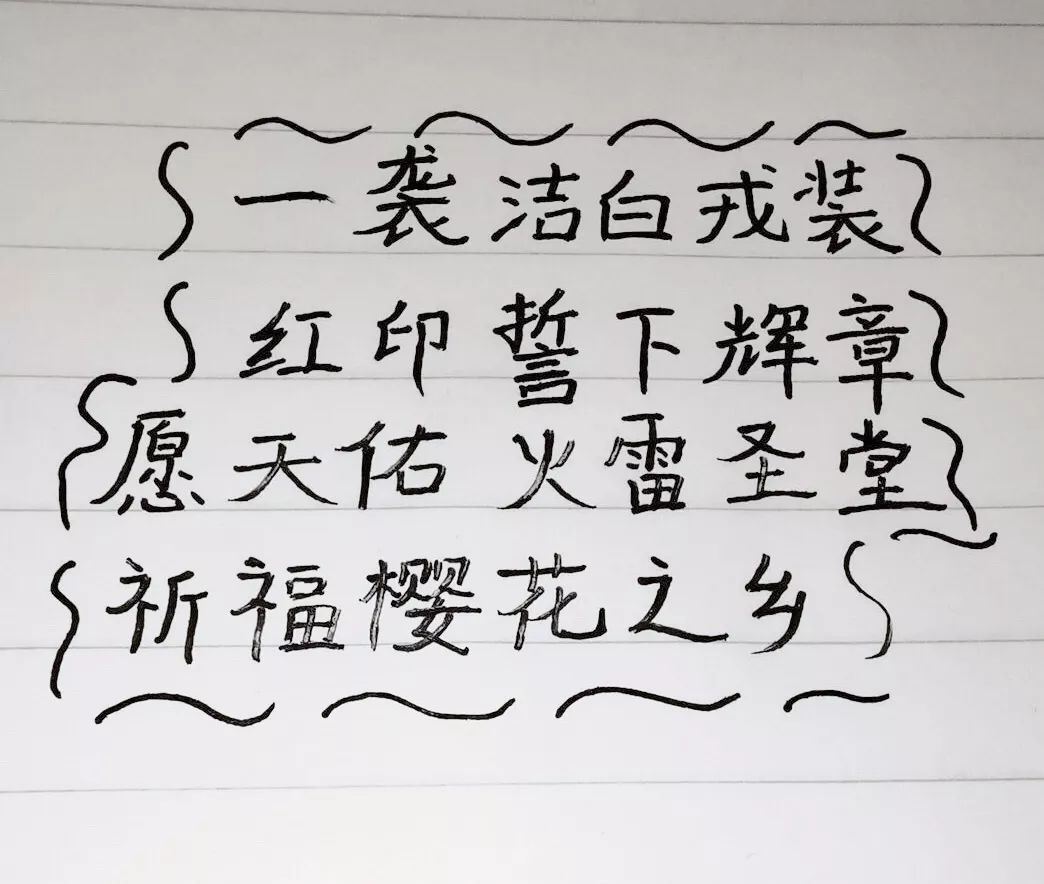 一袭洁白戎装
红印誓下辉章
愿天佑火雷圣堂
祈福樱花之乡